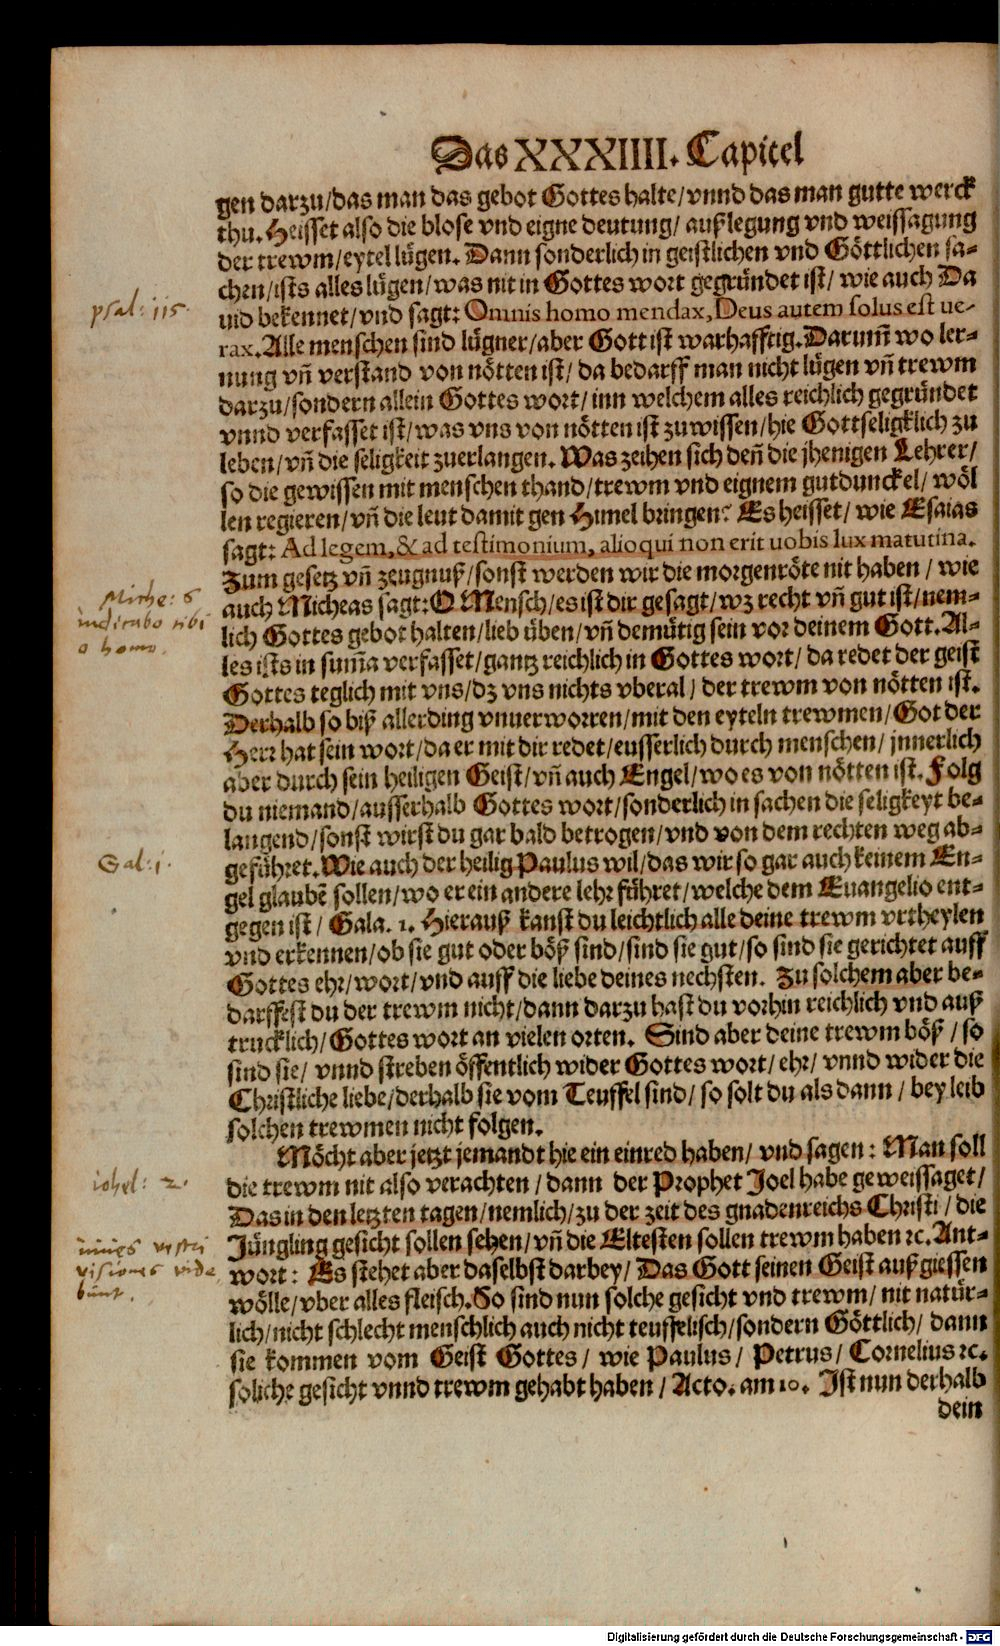 Das XXXIIII. Capitel
gen darzu/das man das gebot Gottes halte/vnnd das man gutte werck
thu. Heisset also die blose vnd eigne deutung/ außlegung vnd weissagung
der trewm/eytel lügen. Dann sonderlich in geistlichen vnd Göttlichen sa-
chen/ists alles lügen/was nit in Gottes wort gegründet ist/ wie auch Da
psal: 115.
uid bekennet/vnd sagt: Omnis homo mendax, Deus autem solus est ue-
rax. Alle menschen sind lügner/aber Gott ist warhafftig. Darum̃ wo ler-
nung vñ verstand von nötten ist/ da bedarff man nicht lügen vñ trewm
darzu/sondern allein Gottes wort/ inn welchem alles reichlich gegründet
vnnd verfasset ist/was vns von nötten ist zuwissen/hie Gottseligklich zu
leben/vñ die seligkeit zuerlangen. Was zeihen sich deñ die jhenigen Lehrer/
so die gewissen mit menschen thand/trewm vnd eignem gutdunckel/ wöl
len regieren/vñ die leut damit gen Himel bringen? Es heisset/ wie Esaias
sagt: Ad legem, & ad testimonium, alioqui non erit uobis lux matutina.
Zum gesetz vñ zeugnuß/sonst werden wir die morgenröte nit haben / wie
Miche: 6
indicabo tibi
o homo.
auch Micheas sagt: O Mensch/es ist dir gesagt/wz recht vñ gut ist/nem-
lich Gottes gebot halten/lieb üben/vñ demütig sein vor deinem Gott. Al-
les ists in sum̃a verfasset/gantz reichlich in Gottes wort/ da redet der geist
Gottes teglich mit vns/dz vns nichts vberal/ der trewm von nötten ist.
Derhalb so biß allerding vnuerworren/mit den eyteln trewmen/Got der
Herr hat sein wort/da er mit dir redet/eusserlich durch menschen/ jnnerlich
aber durch sein heiligen Geist/vñ auch Engel/wo es von nötten ist. Folg
du niemand/ausserhalb Gottes wort/sonderlich in sachen die seligkeyt be-
langend/sonst wirst du gar bald betrogen/vnd von dem rechten weg ab-
Gal: 1.
geführet. Wie auch der heilig Paulus wil/das wir so gar auch keinem En-
gel glaubẽ sollen/wo er ein andere lehr führet/welche dem Euangelio ent-
gegen ist/ Gala. 1. Hierauß kanst du leichtlich alle deine trewm vrtheylen
vnd erkennen/ob sie gut oder böß sind/sind sie gut/so sind sie gerichtet auff
Gottes ehr/wort/vnd auff die liebe deines nechsten. Zu solchem aber be-
darffest du der trewm nicht/dann darzu hast du vorhin reichlich vnd auß
trucklich/Gottes wort an vielen orten. Sind aber deine trewm böß/so
sind sie/ vnnd streben öffentlich wider Gottes wort/ ehr/ vnnd wider die
Christliche liebe/derhalb sie vom Teuffel sind/ so solt du als dann / bey leib
solchen trewmen nicht folgen.
Möcht aber jetzt jemandt hie ein einred haben/ vnd sagen: Man soll
iohel: 2.
die trewm nit also verachten/ dann der Prophet Joel habe geweissaget/
Das in den letzten tagen/nemlich/zu der zeit des gnadenreichs Christi/ die
Jüngling gesicht sollen sehen/vñ die Eltesten sollen trewm haben ꝛc. Ant-
vestri
visiones vide
bunt.
wort: Es stehet aber daselbst darbey/ Das Gott seinen Geist außgiessen
wölle/vber alles fleisch. So sind nun solche gesicht vnd trewm/ nit natür-
lich/nicht schlecht menschlich auch nicht teuffelisch/sondern Göttlich/ dann
sie kommen vom Geist Gottes/ wie Paulus/ Petrus/ Cornelius ꝛc.
soliche gesicht vnnd trewm gehabt haben/ Acto. am 10. Ist nun derhalb
dein
Digitalisierung gefördert durch die Deutsche Forschungsgemeinschaft - DFG